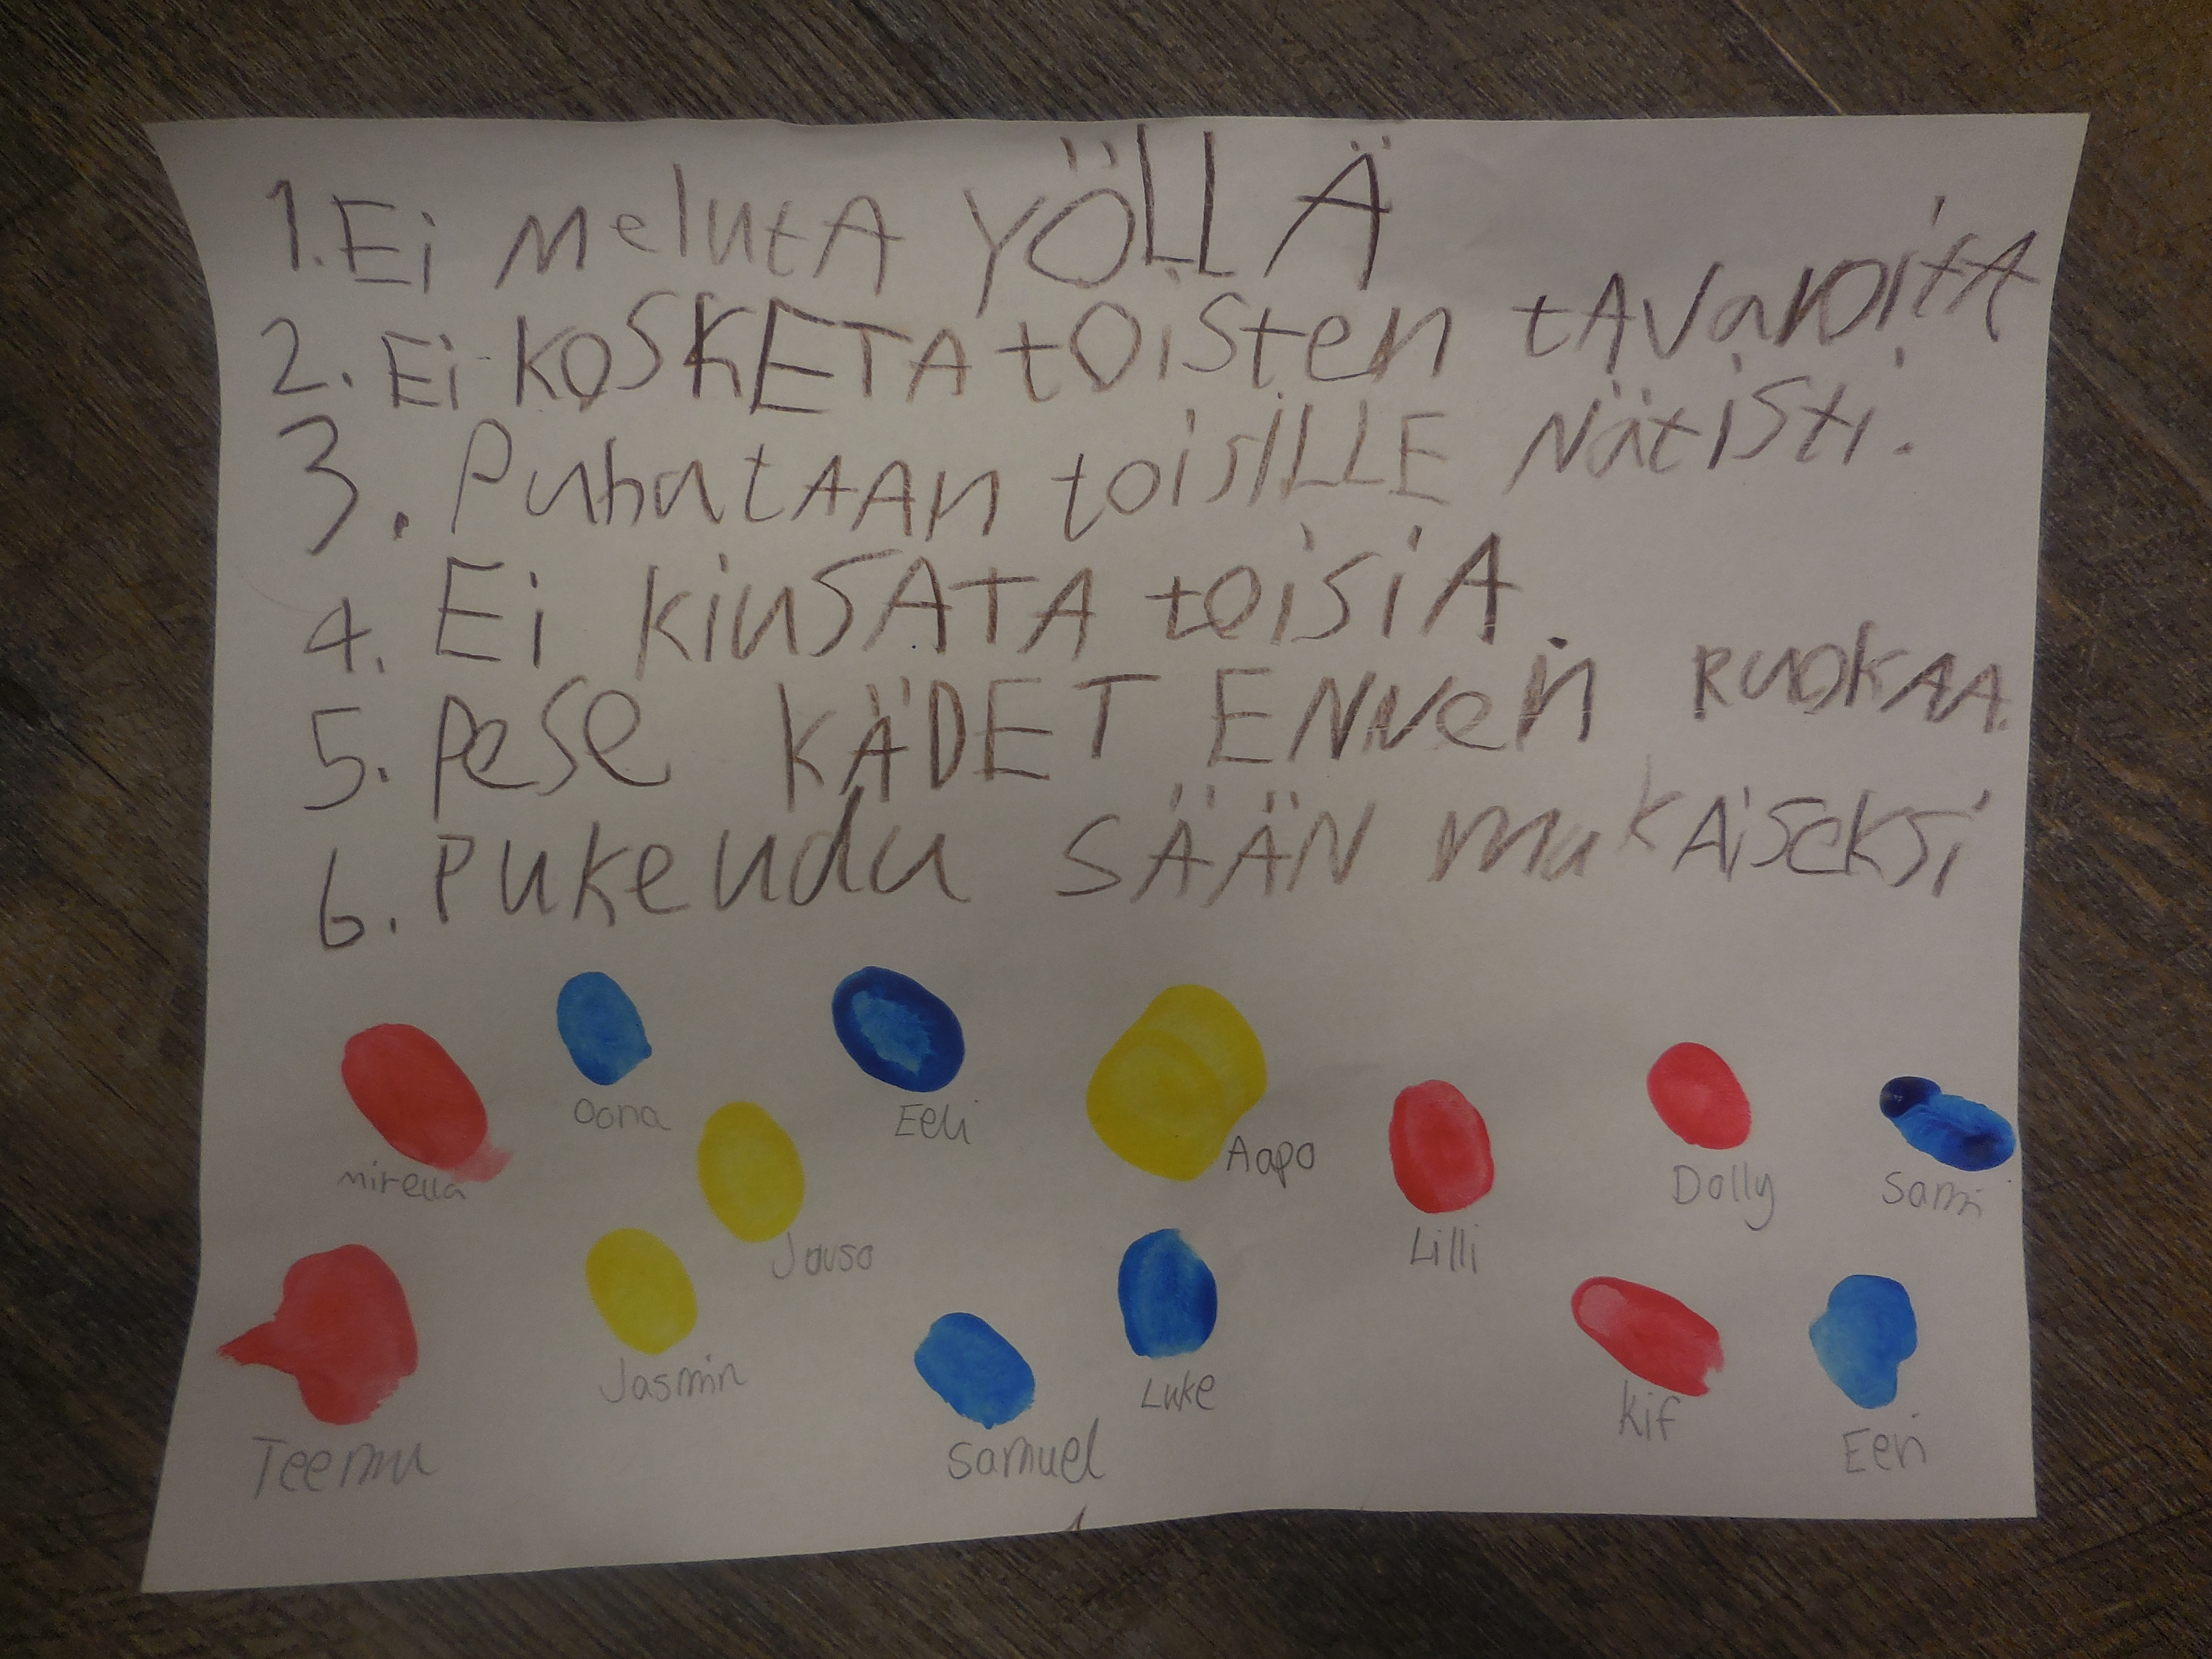 1. Ei MelutA YÖLLÄ
2. Ei KOSKETA toisten tAVaroitA
3. PuhutAAn toisiLLE Nätisti.
4. Ei kiusATA toisiA
5. pese KÄDET ENNen RuoKAA.
6. Pukeudu SÄÄN mukAiseksi
Oona Eeli Aapo Dolly Sami
Mirella Lilli
Jasmin Luke Kif
Teemu Samuel